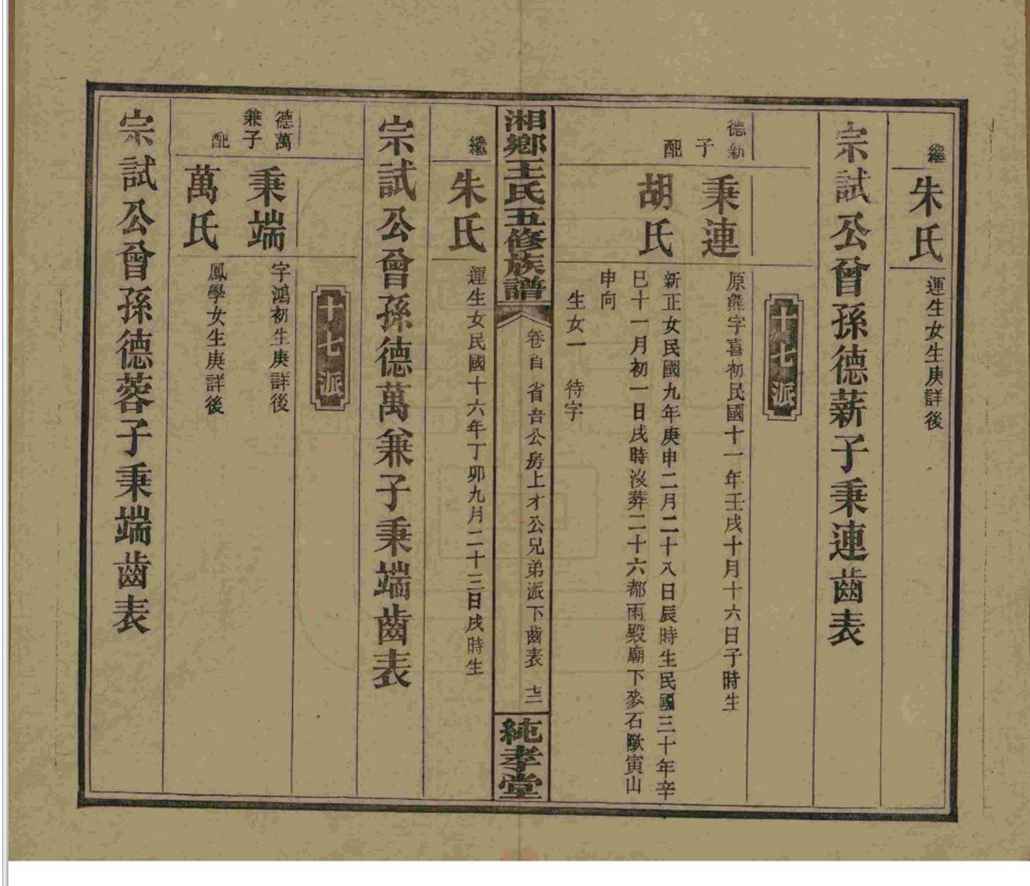 繼
朱氏
運生女生庚詳後
宗試公曾孫德薪子秉連齒表
十七派
德新
子
秉連
原龍字喜初民國十一年壬戌十月十六日子時生
配
胡氏
新正女民國九年庚申二月二十八日辰時生民國三十年辛
巳十一月初一日戌時沒葬二十六都雨殿廟下麥石歐寅山
申向
生女一 待字
湘鄉王氏五修族譜
卷自 省吾公房上才公兄弟派下齒表
純孝堂
繼
朱氏
運生女民國十六年丁卯九月二十三日戌時生
宗試公曾孫德萬兼子秉端齒表
十七派
德萬
兼子
秉端
字鴻初生庚詳後
配
萬氏
鳳學女生庚詳後
宗試公曾孫德蓉子秉端齒表